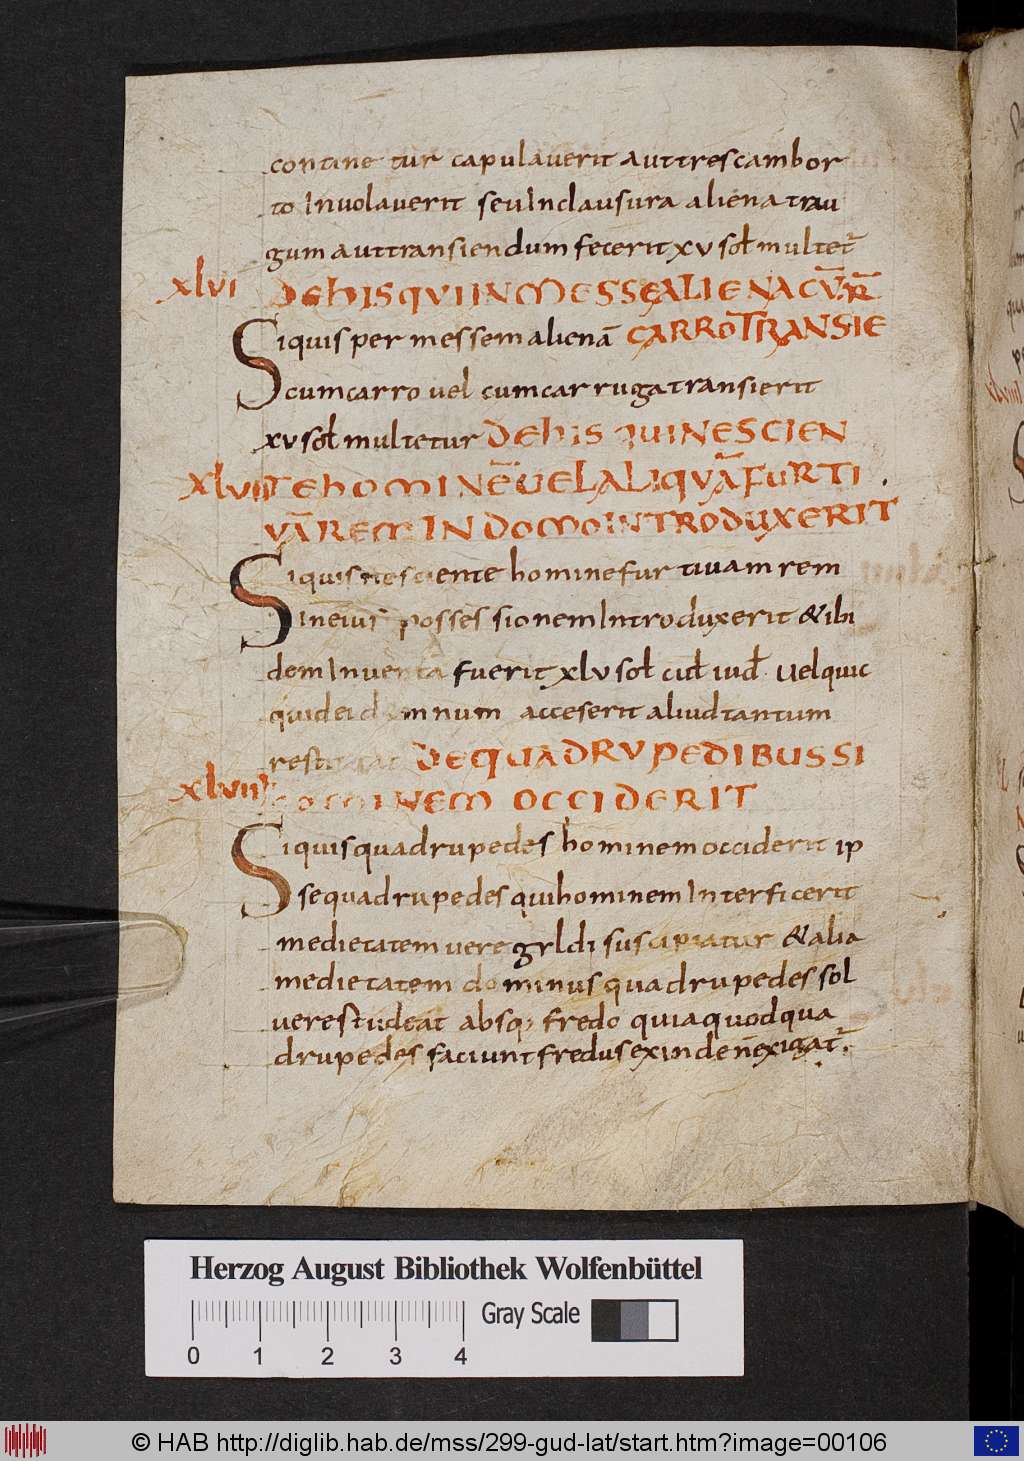 contine tur capulaverit aut tres cambor
to Involaverit seu In clausura aliena trau
gum aut transiendum fecerit xv sol multet̄
xlvi DE his QVI IN MESSE ALIENA CV̄ R̄
Si quis per messem alienā CARRO TRANSIE
cum carro vel cum carruga transierit
xv sol multetur DE his QUI NESCIEN
xlvii TE hOMINĒ VEL ALIQVĀ FURTI
VĀ REM IN DOMO INTRODUXERIT
Si quis nesciente homine furtivam rem
In eius possessionem Introduxerit & ibi
dem Inventa fuerit xlv sol cul iud. Vel quic
quid ei damnum acceserit aliud tantum
restituat DE QUADRVPEDIBUS SI
xlviii hOMINEM OCCIDERIT
Si quis quadrupedes hominem occiderit ip
se quadrupedes qui hominem Interficerit
medietatem veregeldi suscipiatur & alia
medietatem dominus quadrupedes sol
vere studeat absq; fredo quia quod qua
drupedes faciunt fredus exinde n̄ exigat̄.
Herzog August Bibliothek Wolfenbüttel
Gray Scale
0 1 2 3 4
© HAB http://diglib.hab.de/mss/299-gud-lat/start.htm?image=00106